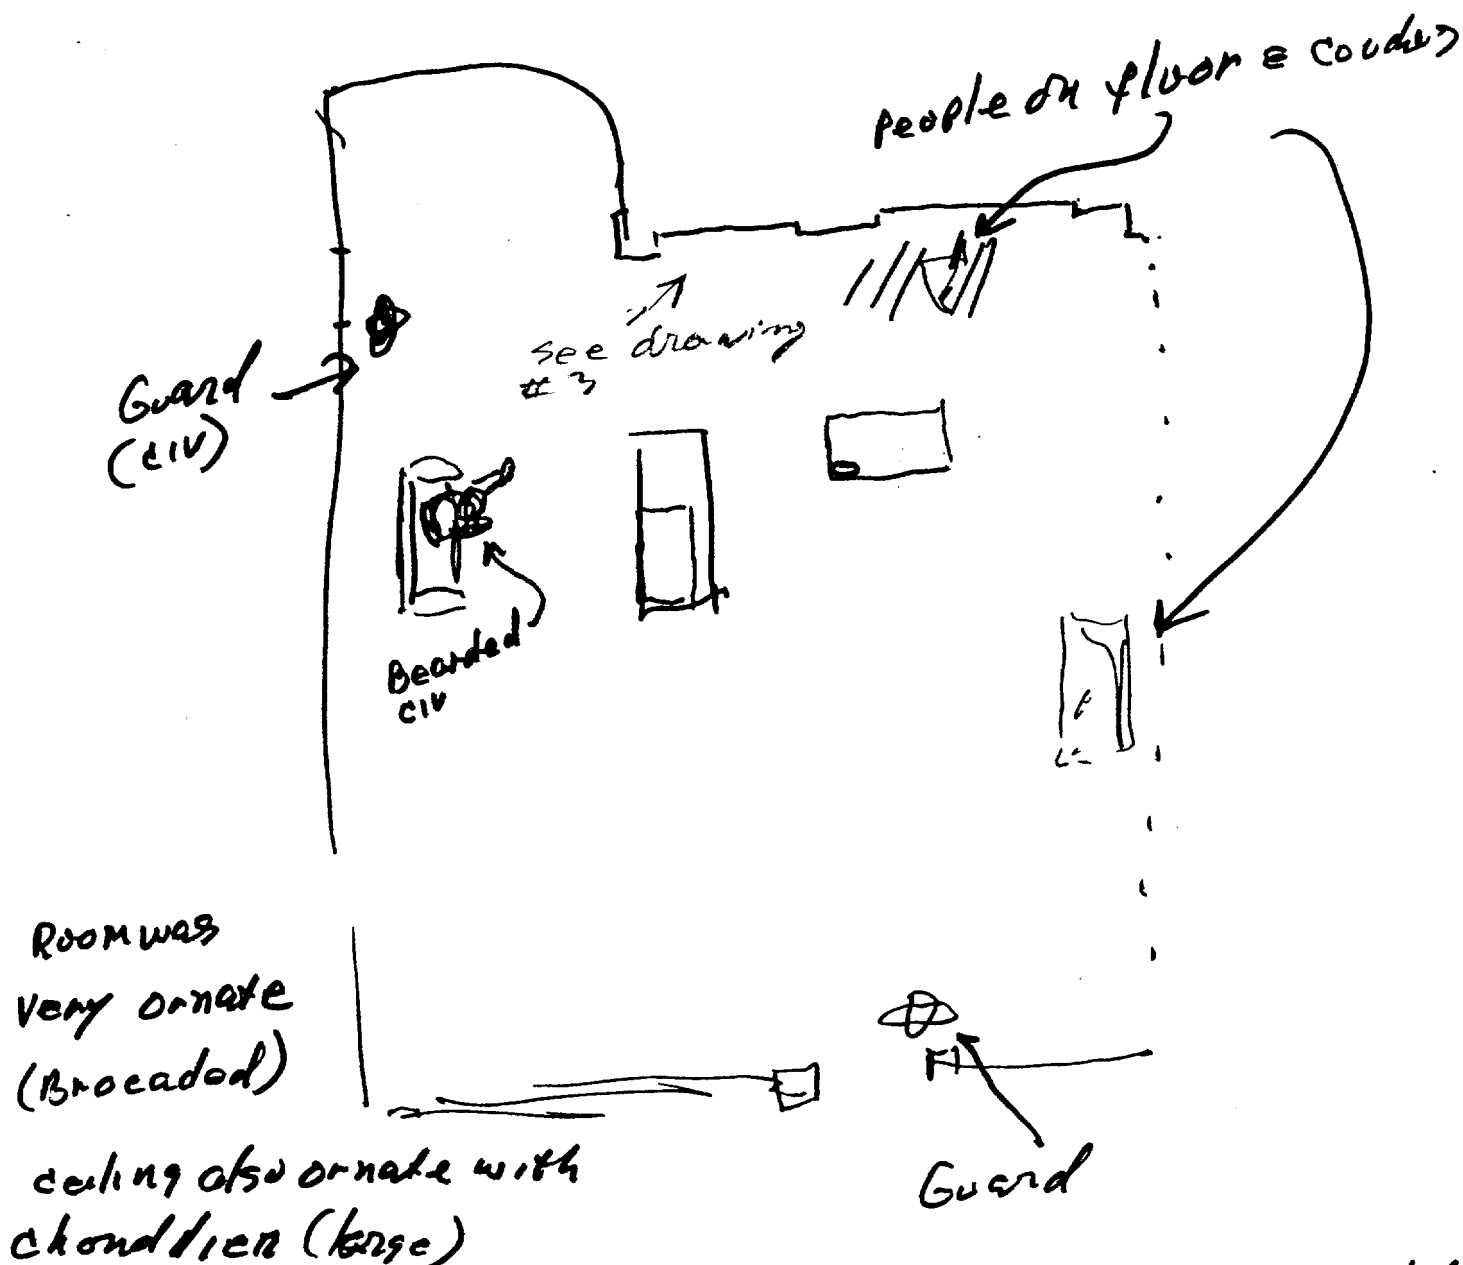 People on floor & couches
see drawing
# 3
Guard
(CIV)
Bearded
CIV
Room was
very ornate
(Brocaded)
ceiling also ornate with
chonddlier (large)
Guard